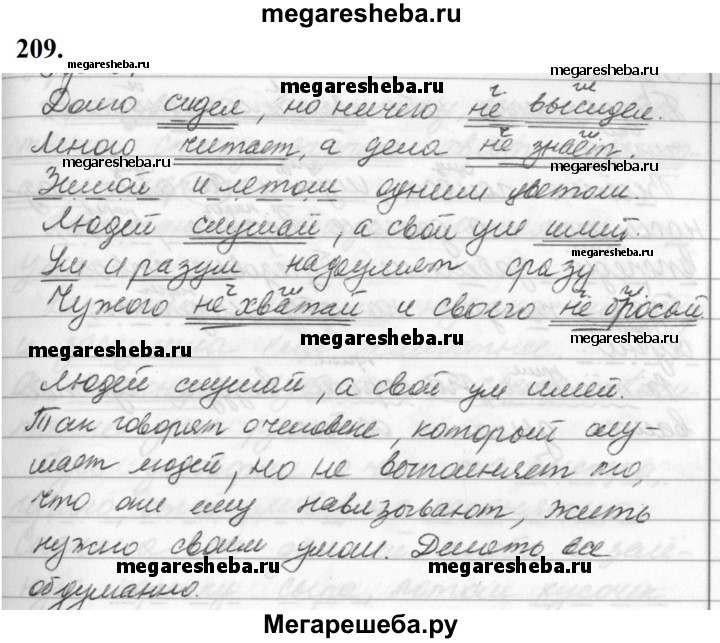 megaresheba.ru
209.
megaresheba.ru
megaresheba.ru
megaresheba.ru
Долго сидел, но ничего не высидел.
ч
гл
Много читает, а дела не знает.
ч
гл
megaresheba.ru
Зимой и летом одним цветом.
megaresheba.ru
Людей слушай, а свой ум имей.
megaresheba.ru
megaresheba.ru
Ум и разум надоумят сразу
Чужого не хватай и своего не бросай.
ч
гл
ч
гл
megaresheba.ru
megaresheba.ru
megaresheba.ru
Людей слушай, а свой ум имей.
Так говорят о человеке, который слу-
шает людей, но не выполняет то,
что они ему навязывают, жить
нужно своим умом. Делать все
megaresheba.ru
megaresheba.ru
обдуманно.
Мегарешеба.ру